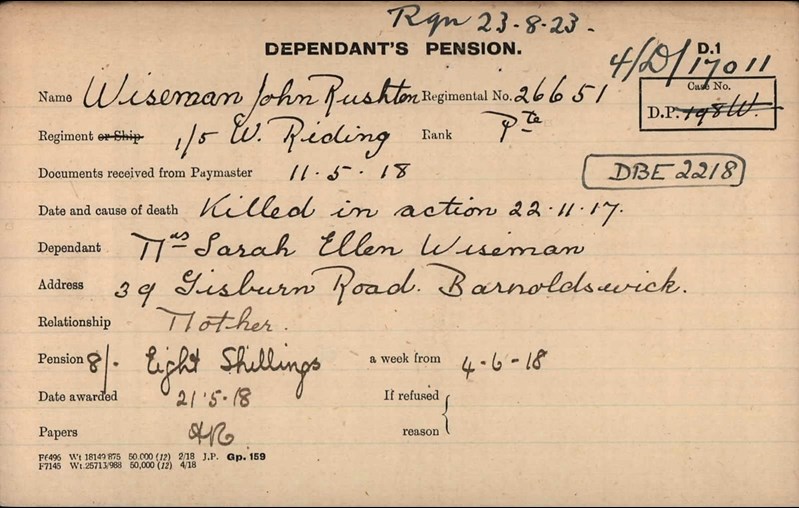 Rgn 23-8-23.
DEPENDANT'S PENSION.
D.1
4/D/17011
Name Wiseman John Rushton Regimental No. 26651
Case No.
D.P. 198W.
Regiment or Ship 1/5 W. Riding Rank Pte
Documents received from Paymaster 11.5.18
DBE 2218
Date and cause of death Killed in action 22.11.17.
Dependant Mrs Sarah Ellen Wiseman
Address 39 Gisburn Road. Barnoldswick.
Relationship Mother.
Pension 8/- Eight Shillings a week from 4-6-18
Date awarded 21.5.18 If refused
Papers reason
F6496 Wt 18149/875 50,000 (12) 2/18 J.P. Gp. 159
F7145 Wt.25713/988 50,000 (12) 4/18